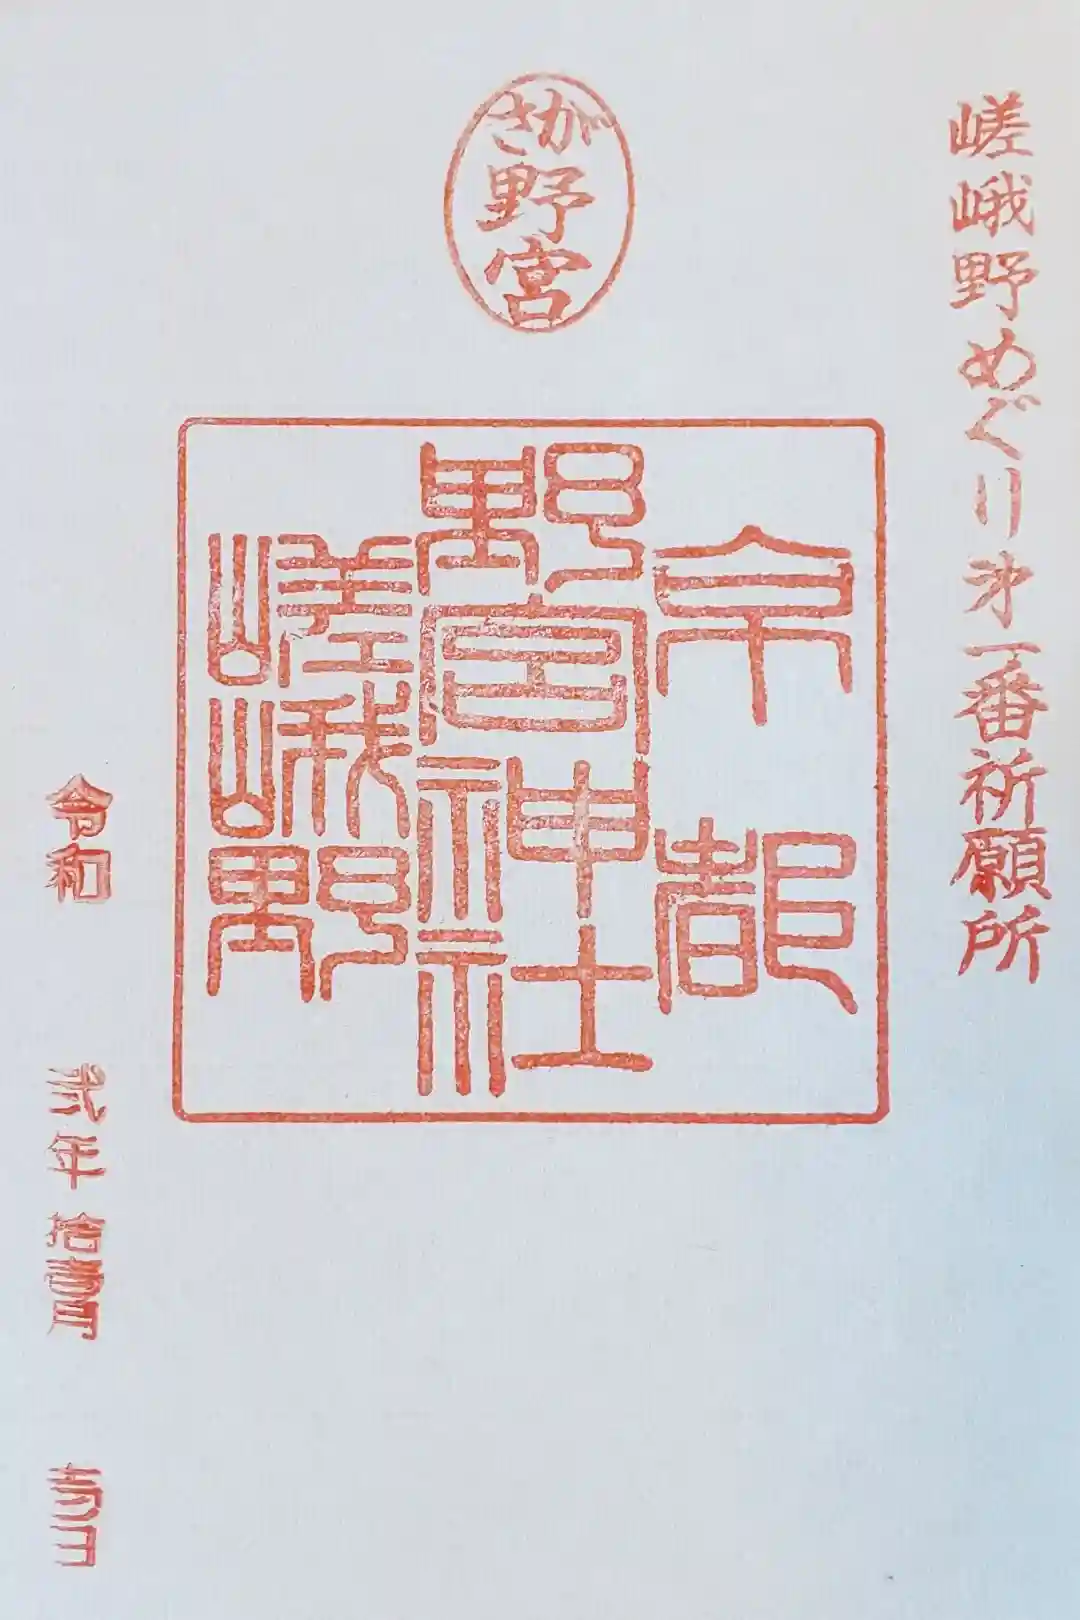 嵯峨野めぐり㐧一番祈願所
さが
野
宮
京都
野宮神社
嵯峨野
令和 弐年 拾壹月